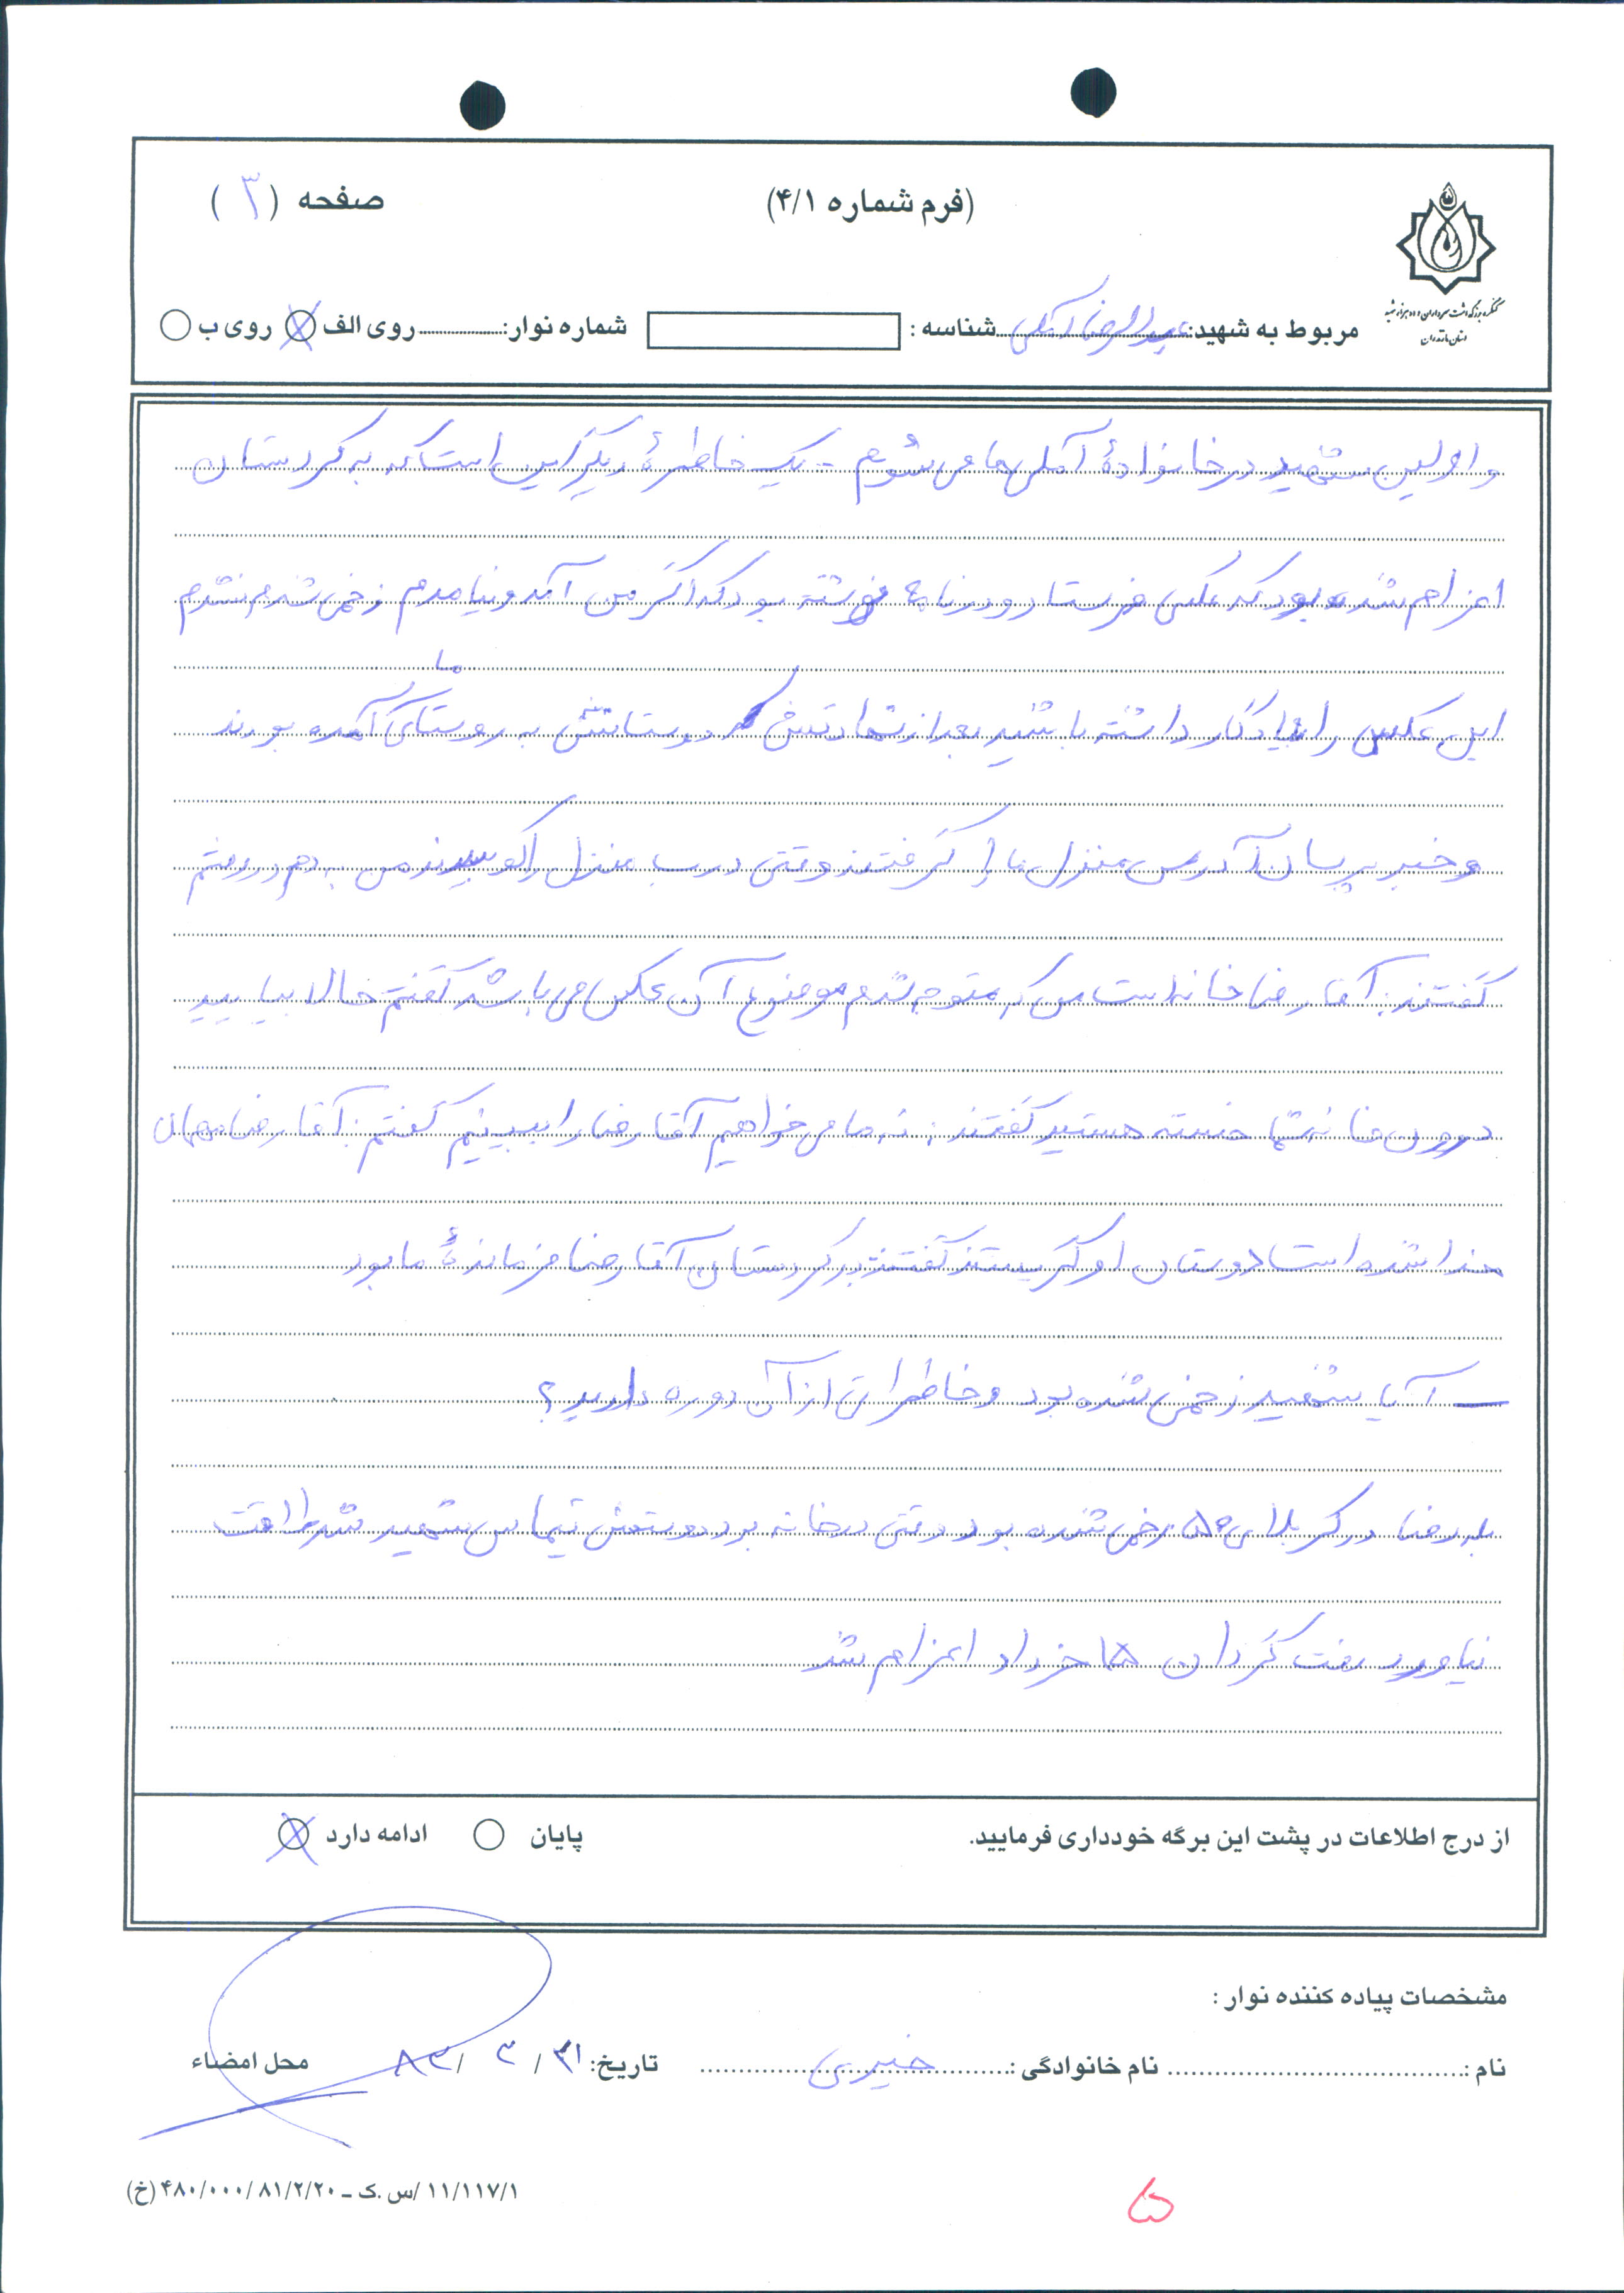 (فرم شماره ۴/۱)
صفحه (۳)
کنگره بزرگداشت سرداران و ده هزار شهید
استان مازندران
مربوط به شهید: عبدالرضا آملی شناسه : شماره نوار: روی الف روی ب
و اولین شهید در خانوادهٔ آملی ها می شوم - یک خاطرهٔ دیگر این است که به کردستان
اعزام شده بود که عکس فرستاد و در نامه نوشته بود که اگر من آمدم و نیامدم زخمی شدم نشدم
این عکس را یادگار داشته باشید بعد از شهادتش دوستانش به روستای ما آمده بودند
و خبر پرسان آدرس منزل ما را گرفتند وقتی درب منزل را کوبیدند من به دم در رفتم
گفتند: آقا رضا خانه است من که متوجه شدم موضوع آن عکس می باشد گفتم حالا بیایید
درون خانه شما خسته هستید گفتند: نه ما می خواهیم آقا رضا را ببینیم گفتم: آقا رضا مهمان
خدا شده است دوستان او گریستند گفتند در کردستان آقا رضا فرماندهٔ ما بود
— آیا شهید زخمی شده بود و خاطراتی از آن دوره دارید؟
بله رضا در کربلای ۵ زخمی شده بود وقتی در خانه بود دوستش شهید شد طاقت
نیاورد رفت گردان ۱۵ خرداد اعزام شد
از درج اطلاعات در پشت این برگه خودداری فرمایید. پایان ادامه دارد
مشخصات پیاده کننده نوار :
نام : نام خانوادگی : خیری تاریخ: ۳۱ / ۳ / ۸۳ محل امضاء
۱۱/۱۱۷/۱ /س .ک ـ ۸۱/۲/۲۰ /۴۸۰/۰۰۰ (خ)
۵